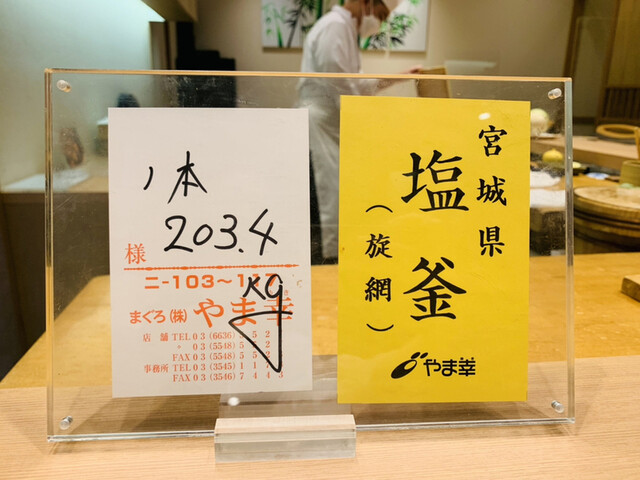 ノ本
203.4
Kg
様
ニ-103~117
まぐろ(株)やま幸
店舗 TEL03(6636)
〃 03(5548)
FAX03(5548)
事務所 TEL03(3545)
FAX03(3546)7443
宮城県
塩釜
(旋網)
やま幸